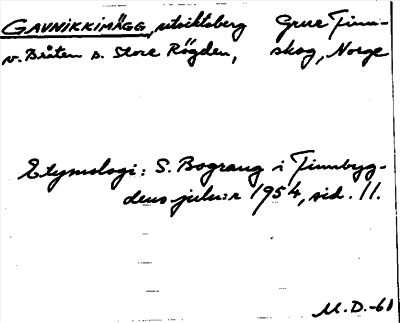 GAVNIKKIMÄGG, utsiktsberg Grue Finn-
v. Bråten s. Store Rögden, skog, Norge
Etymologi: S. Bograng i Finnbyg-
dens julnr 1954, sid. 11.
M.D.-61